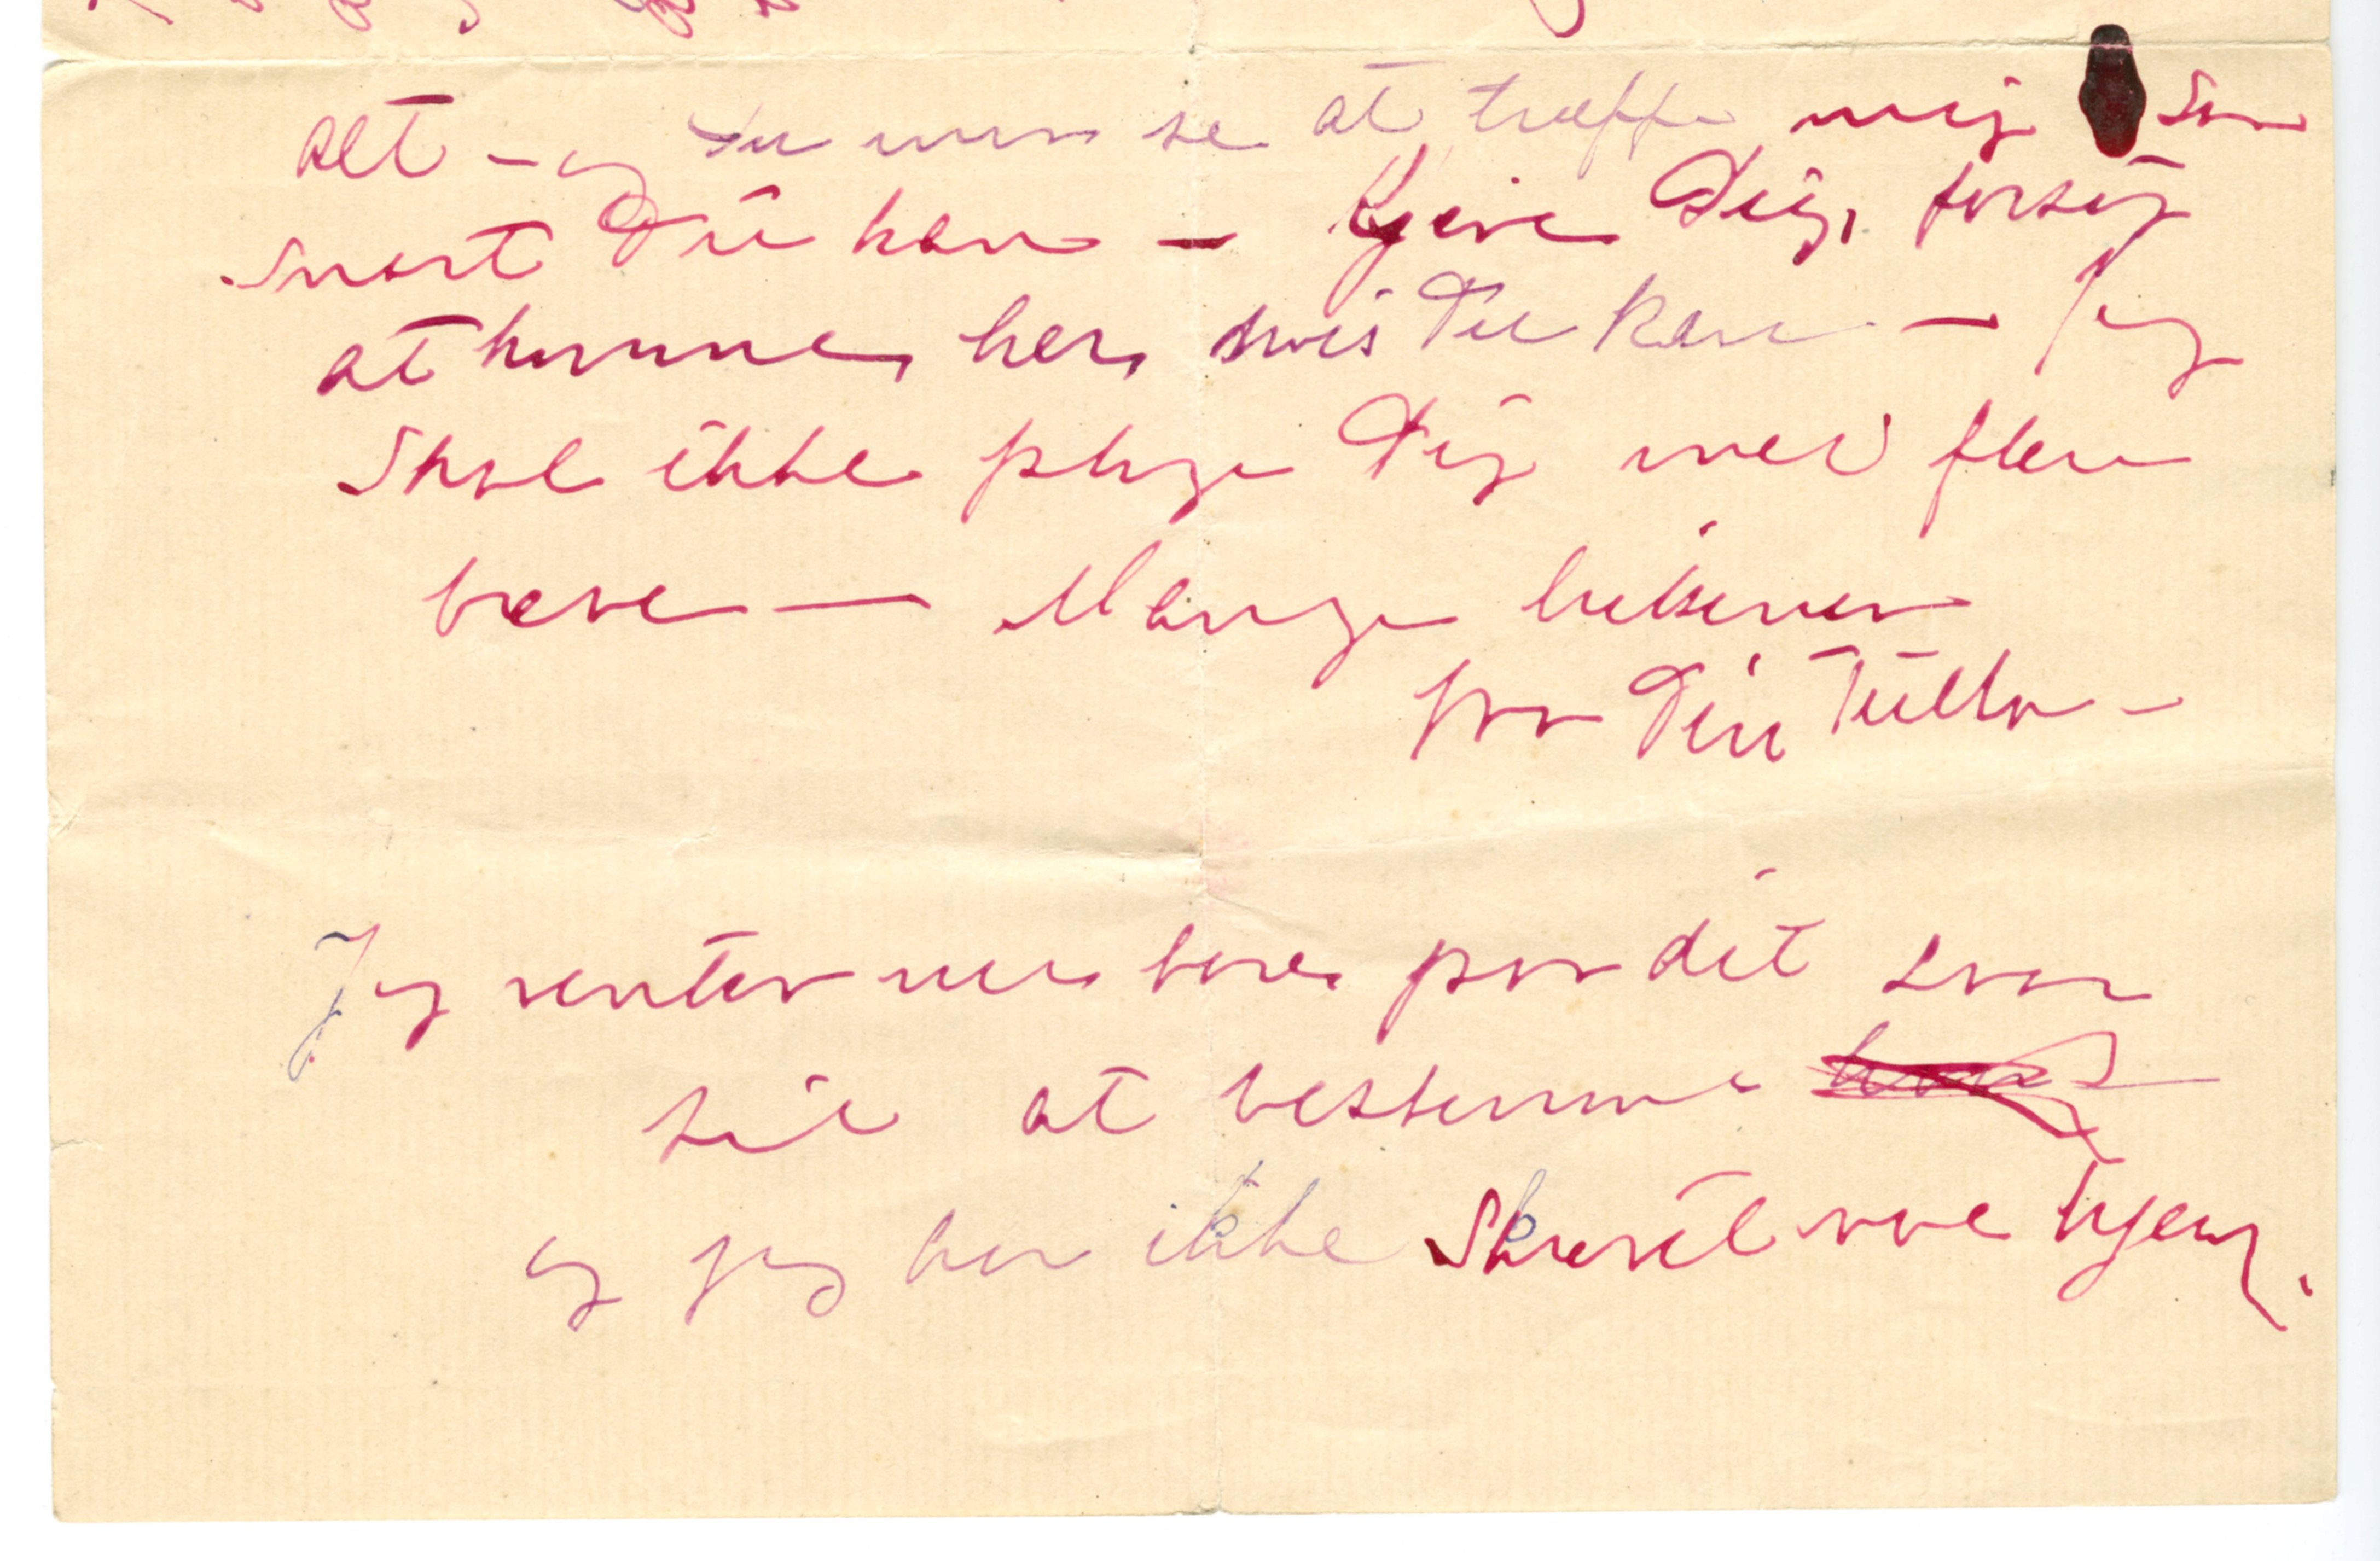 alt – og Du maa se at træffe mig saa
snart Du kan – Kjære Dig, forsøg
at komme, her, hvis Du kan – Jeg
skal ikke plage Dig med flere
breve — Mange hilsener
fra Din Tulla –
Jeg venter nu bare paa dit svar
til at bestemme
og jeg har ikke skrevet noe hjem.